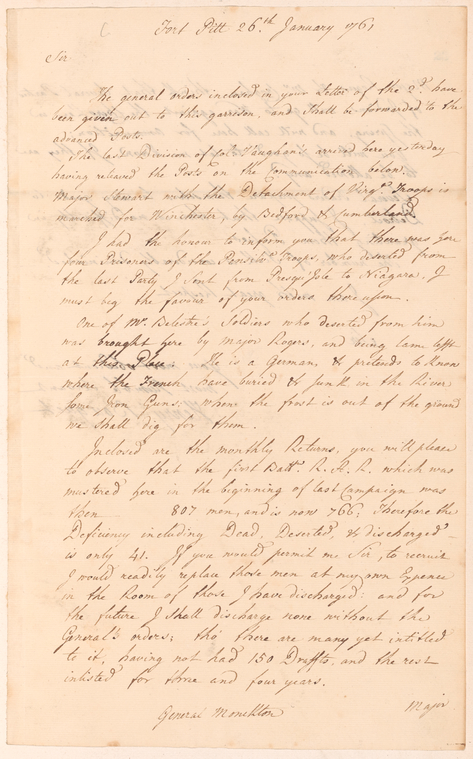 Fort Pitt 26.th January 1761
Sir
The general orders inclosed in your Letter of the 2.d have
been given out to this garrison, and shall be forwarded to the
advanced Posts.
The last Division of Col. Vaughan's arrived here yesterday
having relieved the Posts on the Communication below.
Major Stewart with the Detachment of Virg.a Troops is
marched for Winchester, by Bedford & Cumberland
I had the honour to inform you that there was here
four Prisoners of the Pensilv.a Troops, who deserted from
the last Party I sent from Presqu'Isle to Niagara, I
must beg the favour of your orders thereupon.
One of Mr. Belestre's Soldiers who deserted from him
was brought here by Major Rogers, and being lame left
at this Place. He is a German, & pretends to know
where the French have buried & sunk in the River
some Iron Guns: when the frost is out of the ground
we shall dig for them.
Inclosed are the monthly Returns, you will please
to observe that the first Batt.n R. A. R. which was
mustered here in the beginning of last Campaign was
then 807 men, and is now 766, Therefore the
Deficiency including Dead, Deserted, & discharged
is only 41. If you would permit me Sir, to recruit
I would readily replace those men at my own Expence
in the Room of those I have discharged: and for
the future I shall discharge none without the
General's orders; tho' there are many yet intitled
to it, having not had 150 Draffts, and the rest
inlisted for three and four years.
General Monckton
Major